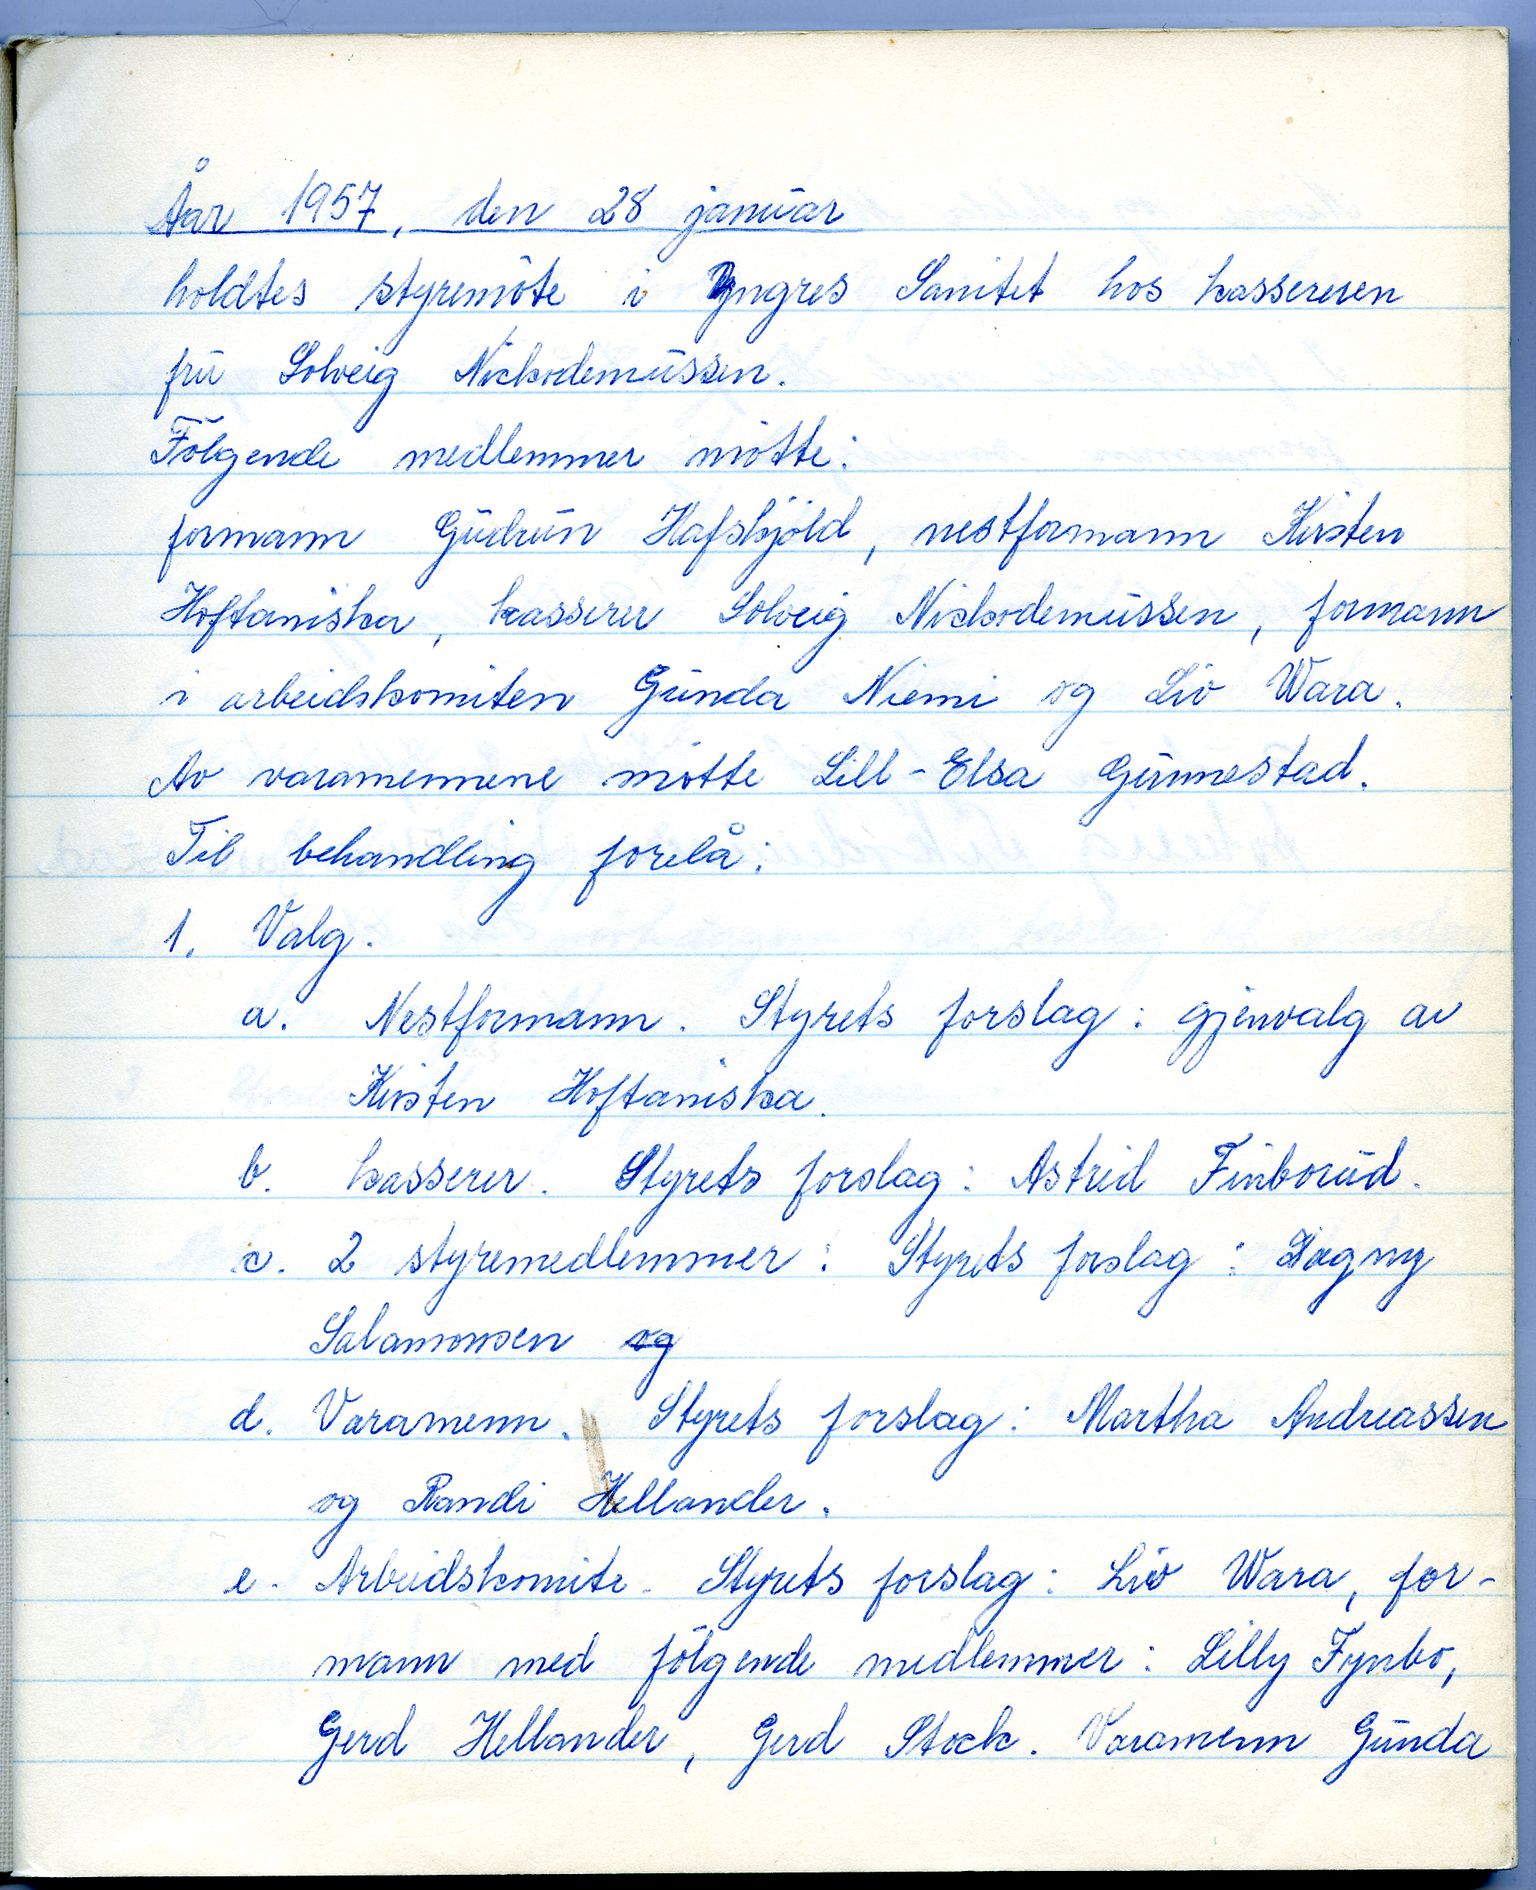 År 1957, den 28 januar
holdtes styremöte i Yngres Sanitet hos kassereren
fru Solveig Nickodemussen.
Fölgende medlemmer mötte:
formann Gudrun Hafskjöld, nestformann Kirsten
Hoftaniska, kasserer Solveig Nickodemussen, formann
i arbeidskomiten Gunda Niemi og Liv Wara.
Av varamennene mötte Lill-Elsa Gunnestad.
Til behandling forelå:
1. Valg.
a. Nestformann. Styrets forslag: gjenvalg av
Kirsten Hoftaniska.
b. kasserer. Styrets forslag: Astrid Finborud.
c. 2 styremedlemmer: Styrets forslag: Dagny
Salamonsen og
d. Varamenn. Styrets forslag: Martha Andreassen
og Randi Hellander.
e. Arbeidskomite. Styrets forslag: Liv Wara, for-
mann med fölgende medlemmer: Lilly Fynbo,
Gerd Hellander, Gerd Stock. Varamenn Gunda